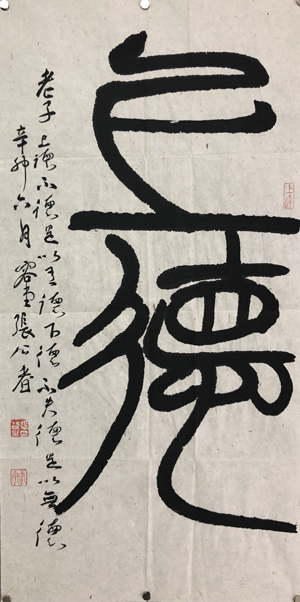 上德
老子 上德不德是以有德下德不失德是以無德
辛卯六月容堂張公者